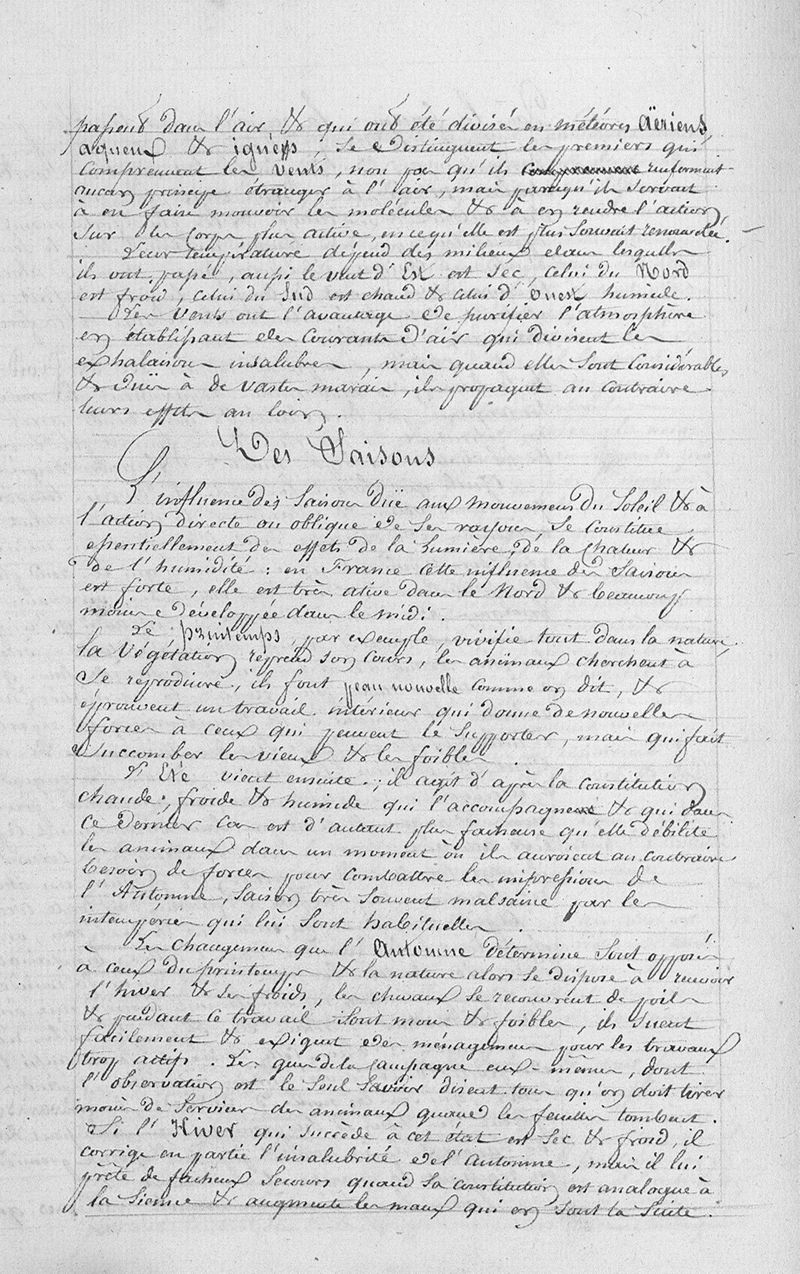 passent dans l'air, & qui ont été divisés en météores Aëriens,
aqueux & ignées ; Se Distinguent les premiers qui
Comprennent les Vents, non pas qu'ils renferment
aucun principe étranger à l'air, mais parcequ'ils Servent
à en faire mouvoir les molécules & à en rendre l'action
Sur les Corps plus active, en ce qu'elle est plus Souvent renouvelée.
Leur température dépend des milieux dans lesquels
ils ont passé, aussi le vent d'Est est Sec, Celui du Nord
est froid, Celui du Sud est chaud & Celui d'Ouest humide.
Les Vents ont l'avantage de purifier l'atmosphère
en établissant des Courants d'air qui divisent les
exhalaisons insalubres, mais quand elles Sont Considérables
& düe à de vastes marais, ils propagent au Contraire
leurs effets au loin.
Des Saisons
L'influence des Saisons düe aux mouvemens du Soleil & à
l'action directe ou oblique de Ses rayons Se Constitue
essentiellement des effets de la Lumière, de la Chaleur &
De l'humidité : en France Cette influence des Saisons
est forte, elle est très ative dans le Nord & beaucoup
moins Développée dans le midi.
Le printemps, par exemple, vivifie tout dans la nature,
la Végétation reprend son Cours, les animaux cherchent à
Se reproduire, ils font peau nouvelle Comme on dit, &
éprouvent un travail intérieur qui donne de nouvelles
forces à Ceux qui peuvent le Supporter, mais qui fait
Succomber les vieux & les foibles.
L'Eté vient ensuite ; il agit d'après la Constitution
chaude, froide & humide qui l'accompagne & qui dans
Ce Dernier Cas est d'autant plus facheuse qu'elle débilite
les animaux dans un moment où ils auroient au Contraire
besoin de forces pour Combattre les impressions de
l'Automne, Saison très Souvent malsaine par les
intempéries qui lui Sont habituelles.
Les Changemens que l'Automne détermine Sont opposés
à Ceux du printemps & la nature alors Se dispose à recevoir
l'hiver & Ses froids, les chevaux Se recouvrent de poils
& pendant Ce travail Sont mous & foibles, ils Suent
facilement & exigent des ménagemens pour les travaux
trop actifs. Les gens de la Campagne eux-mêmes, dont
l'observation est le Seul Savoir disent tous qu'on doit tirer
moins de Services des animaux quand les feuilles tombent.
Si l'Hiver qui Succède à Cet état est Sec & froid, il
corrige en partie l'insalubrité de l'Automne, mais il lui
prête de facheux Secours quand Sa Constitution est analogue à
la Sienne & augmente les maux qui en Sont la Suite.